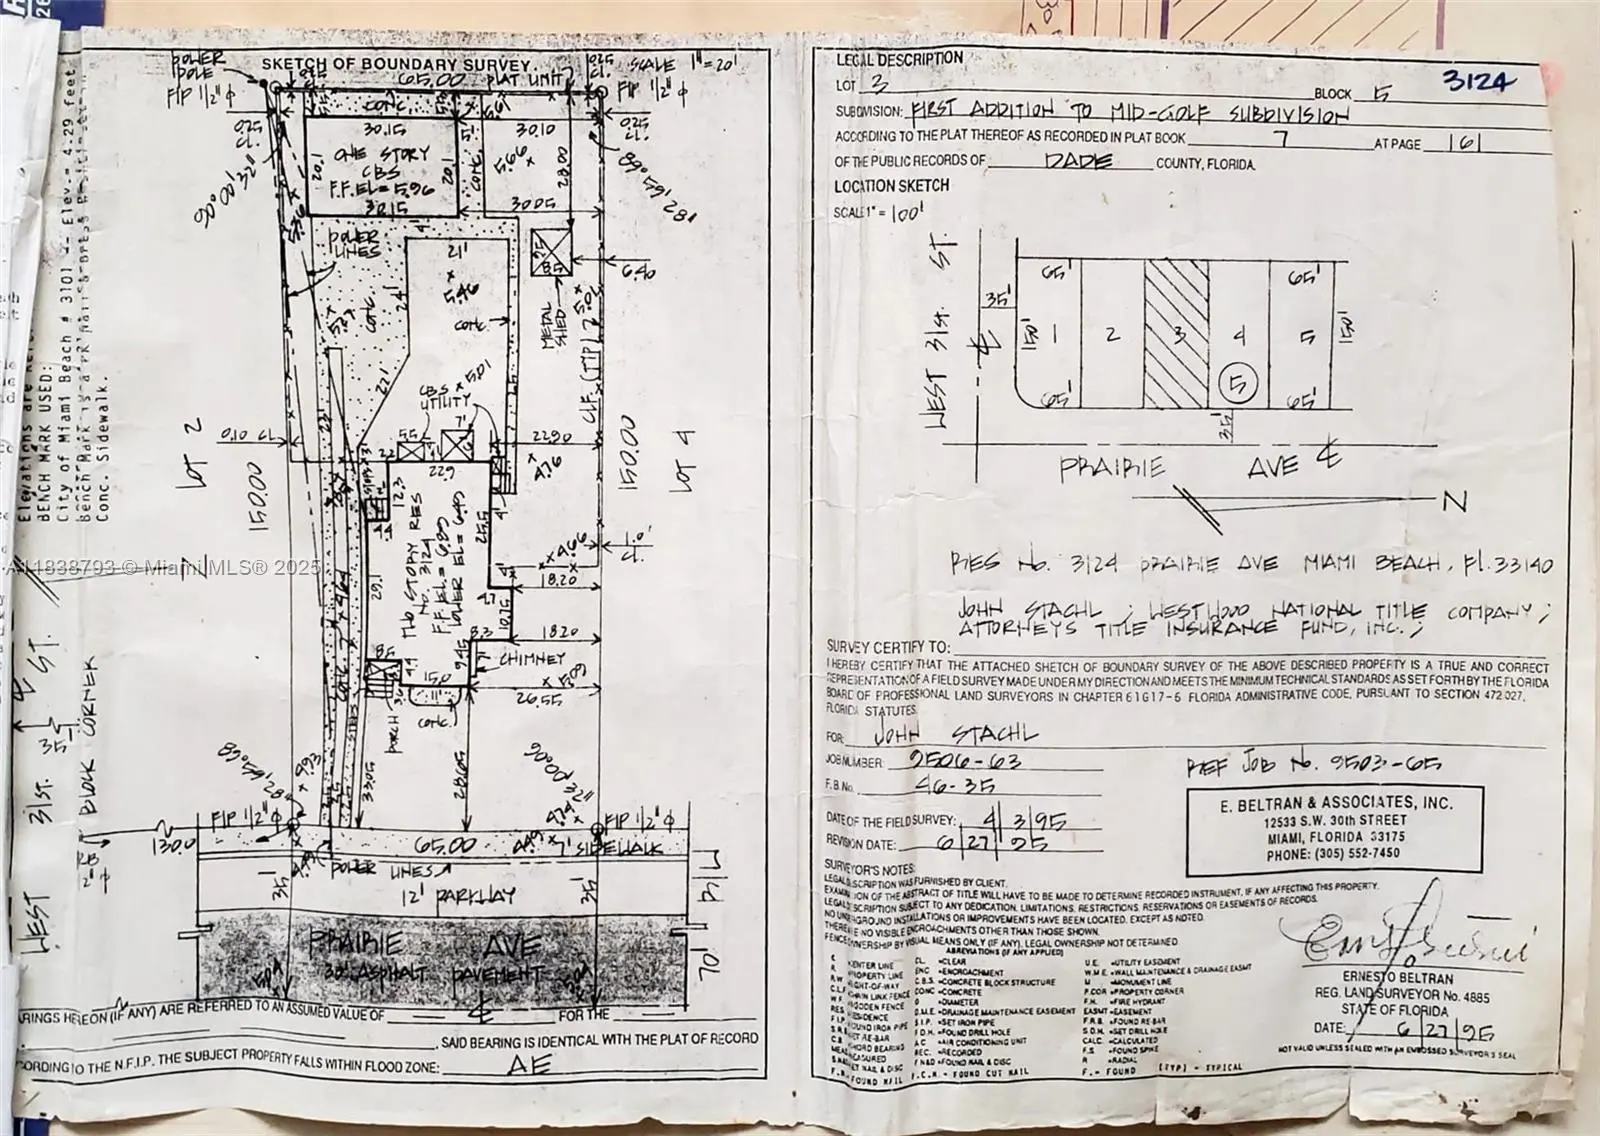 SKETCH OF BOUNDARY SURVEY.
SCALE 1"=20'
POWER POLE
FIP 1/2" ϕ
65.00
PLAT LIMIT
FIP 1/2" ϕ
0.25 CL.
0.25 CL.
CONC.
30.15
30.10
ONE STORY
CBS
F.F.EL=5.96
20.1
20.1
5.66
28.00
CONC.
30.15
30.05
90°00'32"
89°59'28"
POWER LINES
21'
5.46
24'
CONC.
CONC.
22'
6.40
METAL SHED
CLF (TYP)
CBS UTILITY
5.01
LOT 2
150.00
0.10 CL
22.90
4.76
150.00
LOT 4
22.9
12.3
25.5
TWO STORY RES
No. 3124
F.F.EL.= 6.89
LOWER EL= 6.49
29.1
4.66
1.0' CL.
18.20
10.75
18.20
8.3
9.45
CHIMNEY
15.0
26.55
PORCH
CONC.
33.05
28.65
89°59'28"
90°00'32"
9.93
FIP 1/2" ϕ
FIP 1/2" ϕ
130.0
65.00
7' SIDEWALK
POWER LINES
12' PARKWAY
35'
35'
PRAIRIE AVE
30' ASPHALT PAVEMENT
70'
WEST 31st. ST.
BLOCK CORNER
BENCH MARK USED:
City of Miami Beach # 3101 -- Elev.= 4.29 feet
Conc. Sidewalk.
A11838793 © Miami MLS® 2025
BEARINGS HEREON (IF ANY) ARE REFERRED TO AN ASSUMED VALUE OF FOR THE
, SAID BEARING IS IDENTICAL WITH THE PLAT OF RECORD
ACCORDING TO THE N.F.I.P. THE SUBJECT PROPERTY FALLS WITHIN FLOOD ZONE: AE
LEGAL DESCRIPTION
3124
LOT 3 BLOCK 5
SUBDIVISION: FIRST ADDITION TO MID-GOLF SUBDIVISION
ACCORDING TO THE PLAT THEREOF AS RECORDED IN PLAT BOOK 7 AT PAGE 161
OF THE PUBLIC RECORDS OF DADE COUNTY, FLORIDA.
LOCATION SKETCH
SCALE 1" = 100'
WEST 31st. ST.
35'
65'
65'
150'
1
2
3
4
5
150'
5
65'
65'
35'
PRAIRIE AVE
N
RES No. 3124 PRAIRIE AVE MIAMI BEACH, Fl. 33140
JOHN STACHL ; WESTWOOD NATIONAL TITLE COMPANY ;
ATTORNEYS TITLE INSURANCE FUND, INC. ;
SURVEY CERTIFY TO:
I HEREBY CERTIFY THAT THE ATTACHED SKETCH OF BOUNDARY SURVEY OF THE ABOVE DESCRIBED PROPERTY IS A TRUE AND CORRECT
REPRESENTATION OF A FIELD SURVEY MADE UNDER MY DIRECTION AND MEETS THE MINIMUM TECHNICAL STANDARDS AS SET FORTH BY THE FLORIDA
BOARD OF PROFESSIONAL LAND SURVEYORS IN CHAPTER 61G17-6 FLORIDA ADMINISTRATIVE CODE, PURSUANT TO SECTION 472.027,
FLORIDA STATUTES.
FOR: JOHN STACHL
JOB NUMBER: 9506-63
REF JOB No. 9503-65
F.B. No. 46-35
DATE OF THE FIELD SURVEY: 4/3/95
REVISION DATE: 6/27/95
E. BELTRAN & ASSOCIATES, INC.
12533 S.W. 30th STREET
MIAMI, FLORIDA 33175
PHONE: (305) 552-7450
SURVEYOR'S NOTES:
LEGAL DESCRIPTION WAS FURNISHED BY CLIENT.
EXAMINATION OF THE ABSTRACT OF TITLE WILL HAVE TO BE MADE TO DETERMINE RECORDED INSTRUMENT, IF ANY AFFECTING THIS PROPERTY.
LEGAL DESCRIPTION SUBJECT TO ANY DEDICATION, LIMITATIONS, RESTRICTIONS, RESERVATIONS OR EASEMENTS OF RECORDS.
NO UNDERGROUND INSTALLATIONS OR IMPROVEMENTS HAVE BEEN LOCATED, EXCEPT AS NOTED.
THERE ARE NO VISIBLE ENCROACHMENTS OTHER THAN THOSE SHOWN.
FENCE OWNERSHIP BY VISUAL MEANS ONLY (IF ANY). LEGAL OWNERSHIP NOT DETERMINED
ABBREVIATIONS (IF ANY APPLIED)
CENTER LINE
PROPERTY LINE
CL. =CLEAR
ENC =ENCROACHMENT
C.B.S. =CONCRETE BLOCK STRUCTURE
CONC =CONCRETE
D =DIAMETER
D.M.E. =DRAINAGE MAINTENANCE EASEMENT
S.I.P. =SET IRON PIPE
F.D.H. =FOUND DRILL HOLE
A.C =AIR CONDITIONING UNIT
REC. =RECORDED
FN&D =FOUND NAIL & DISC
F.C.N - FOUND CUT NAIL
U.E. =UTILITY EASEMENT
W.M.E. =WALL MAINTENANCE & DRAINAGE EASMT
M =MONUMENT LINE
P.COR =PROPERTY CORNER
F.H. =FIRE HYDRANT
EASMT =EASEMENT
F.R.B =FOUND RE-BAR
S.D.H. =SET DRILL HOLE
CALC. =CALCULATED
F.S =FOUND SPIKE
R =RADIAL
F.N- FOUND NAIL
F. - FOUND
(TYP) - TYPICAL
ERNESTO BELTRAN
REG. LAND SURVEYOR No. 4885
STATE OF FLORIDA
DATE: 6/27/95
NOT VALID UNLESS SEALED WITH AN EMBOSSED SURVEYOR'S SEAL